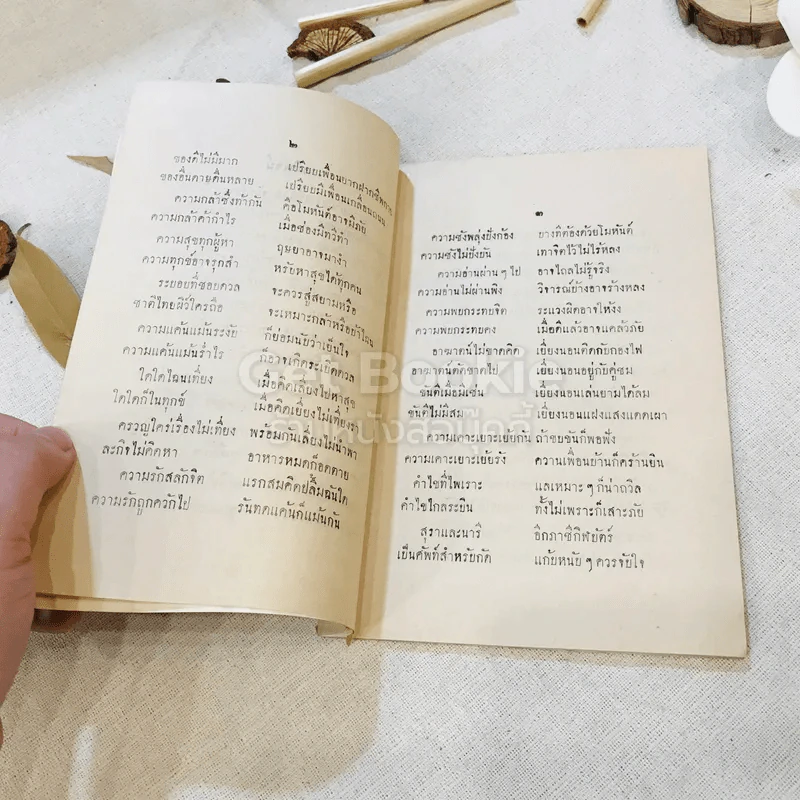 ๒
ของดีไม่มีมาก
ของอื่นดายดื่นหลาย เปรียบมีเพื่อนเกลื่อนถนน
ความกล้าซึ่งทำกัน คือโมหันต์อาจมีภัย
ความกล้าค้ากำไร เมื่อช่องมีทวีทำ
ความสุขทุกผู้หา ฤษยาอาจมางำ
ความทุกข์อาจรุกล้ำ หรับหาสุขได้ทุกคน
ระบอบที่ชอบดวล จะควรสู่สยามหรือ
ชาติไทยผิว์ใครถือ จะเหมาะกล้าหรือบ้าไฉน
ความแค้นแม้นระงับ ก็ย่อมนับว่าเย็นใจ
ความแค้นแม้นร่ำไร ก็อาจเกิดระเบิดดวล
ใดใดไฉนเที่ยง เมื่อคิดเลี่ยงไปหาสุข
ใดใดก็ในทุกข์ เมื่อคิดเอียงไม่เที่ยงรา
ครวญใคร่เรื่องไม่เที่ยง พร้อมกันเลี่ยงไม่นำพา
ละกิจไม่คิดหา อาหารหมดก็อดตาย
ความรักสลักจิต แรกสมคิดปลื้มฉันใด
ความรักถูกควักไป รันทดแค้นก็แม้นกัน
๓
ความชังพลุ่งยั่งก้อง บางทีต้องด้วยโมหันต์
ความชังไม่ยั่งยืน เทาจิตไว้ไม่ไร้หลง
ความอ่านผ่าน ๆ ไป อาจไถลไม่รู้จริง
ความอ่านไม่ผ่านพิง วิจารณ์บ้างอาจร้างหลง
ความพยกระทบจิต ระแวงผิดอาจให้งง
ความพยกระทบคง เมื่อดีแล้วอาจแคล้วภัย
อาฆาตน์ไม่ขาดคิด เยี่ยงนอนติดกับกองไฟ
อาฆาตน์ตัดขาดไป เยี่ยงนอนอยู่กับคู่ชม
ขันติเชื่อมเช่น เยี่ยงนอนเล่นยามได้ลม
ขันติไม่มีสม เยี่ยงนอนแฝงแสงแดดเผา
ความเคาะเยาะเย้ยกัน ถ้าขบขันก็พอฟัง
ความเคาะเยาะเย้ยรัง ความเพื่อนบ้านก็คร้านยิน
คำไขที่ไพเราะ แลเหมาะ ๆ ก็น่าถวิล
คำไขใกลระยิน ทั้งไม่เพราะก็เสาะภัย
สุราและนารี อีกภาชีกีฬบัตร์
เป็นศัพท์สำหรับกัด แก้บหนับ ๆ ควรจับใจ
Get Bookie
ร้านหนังสือบุ๊คกี้